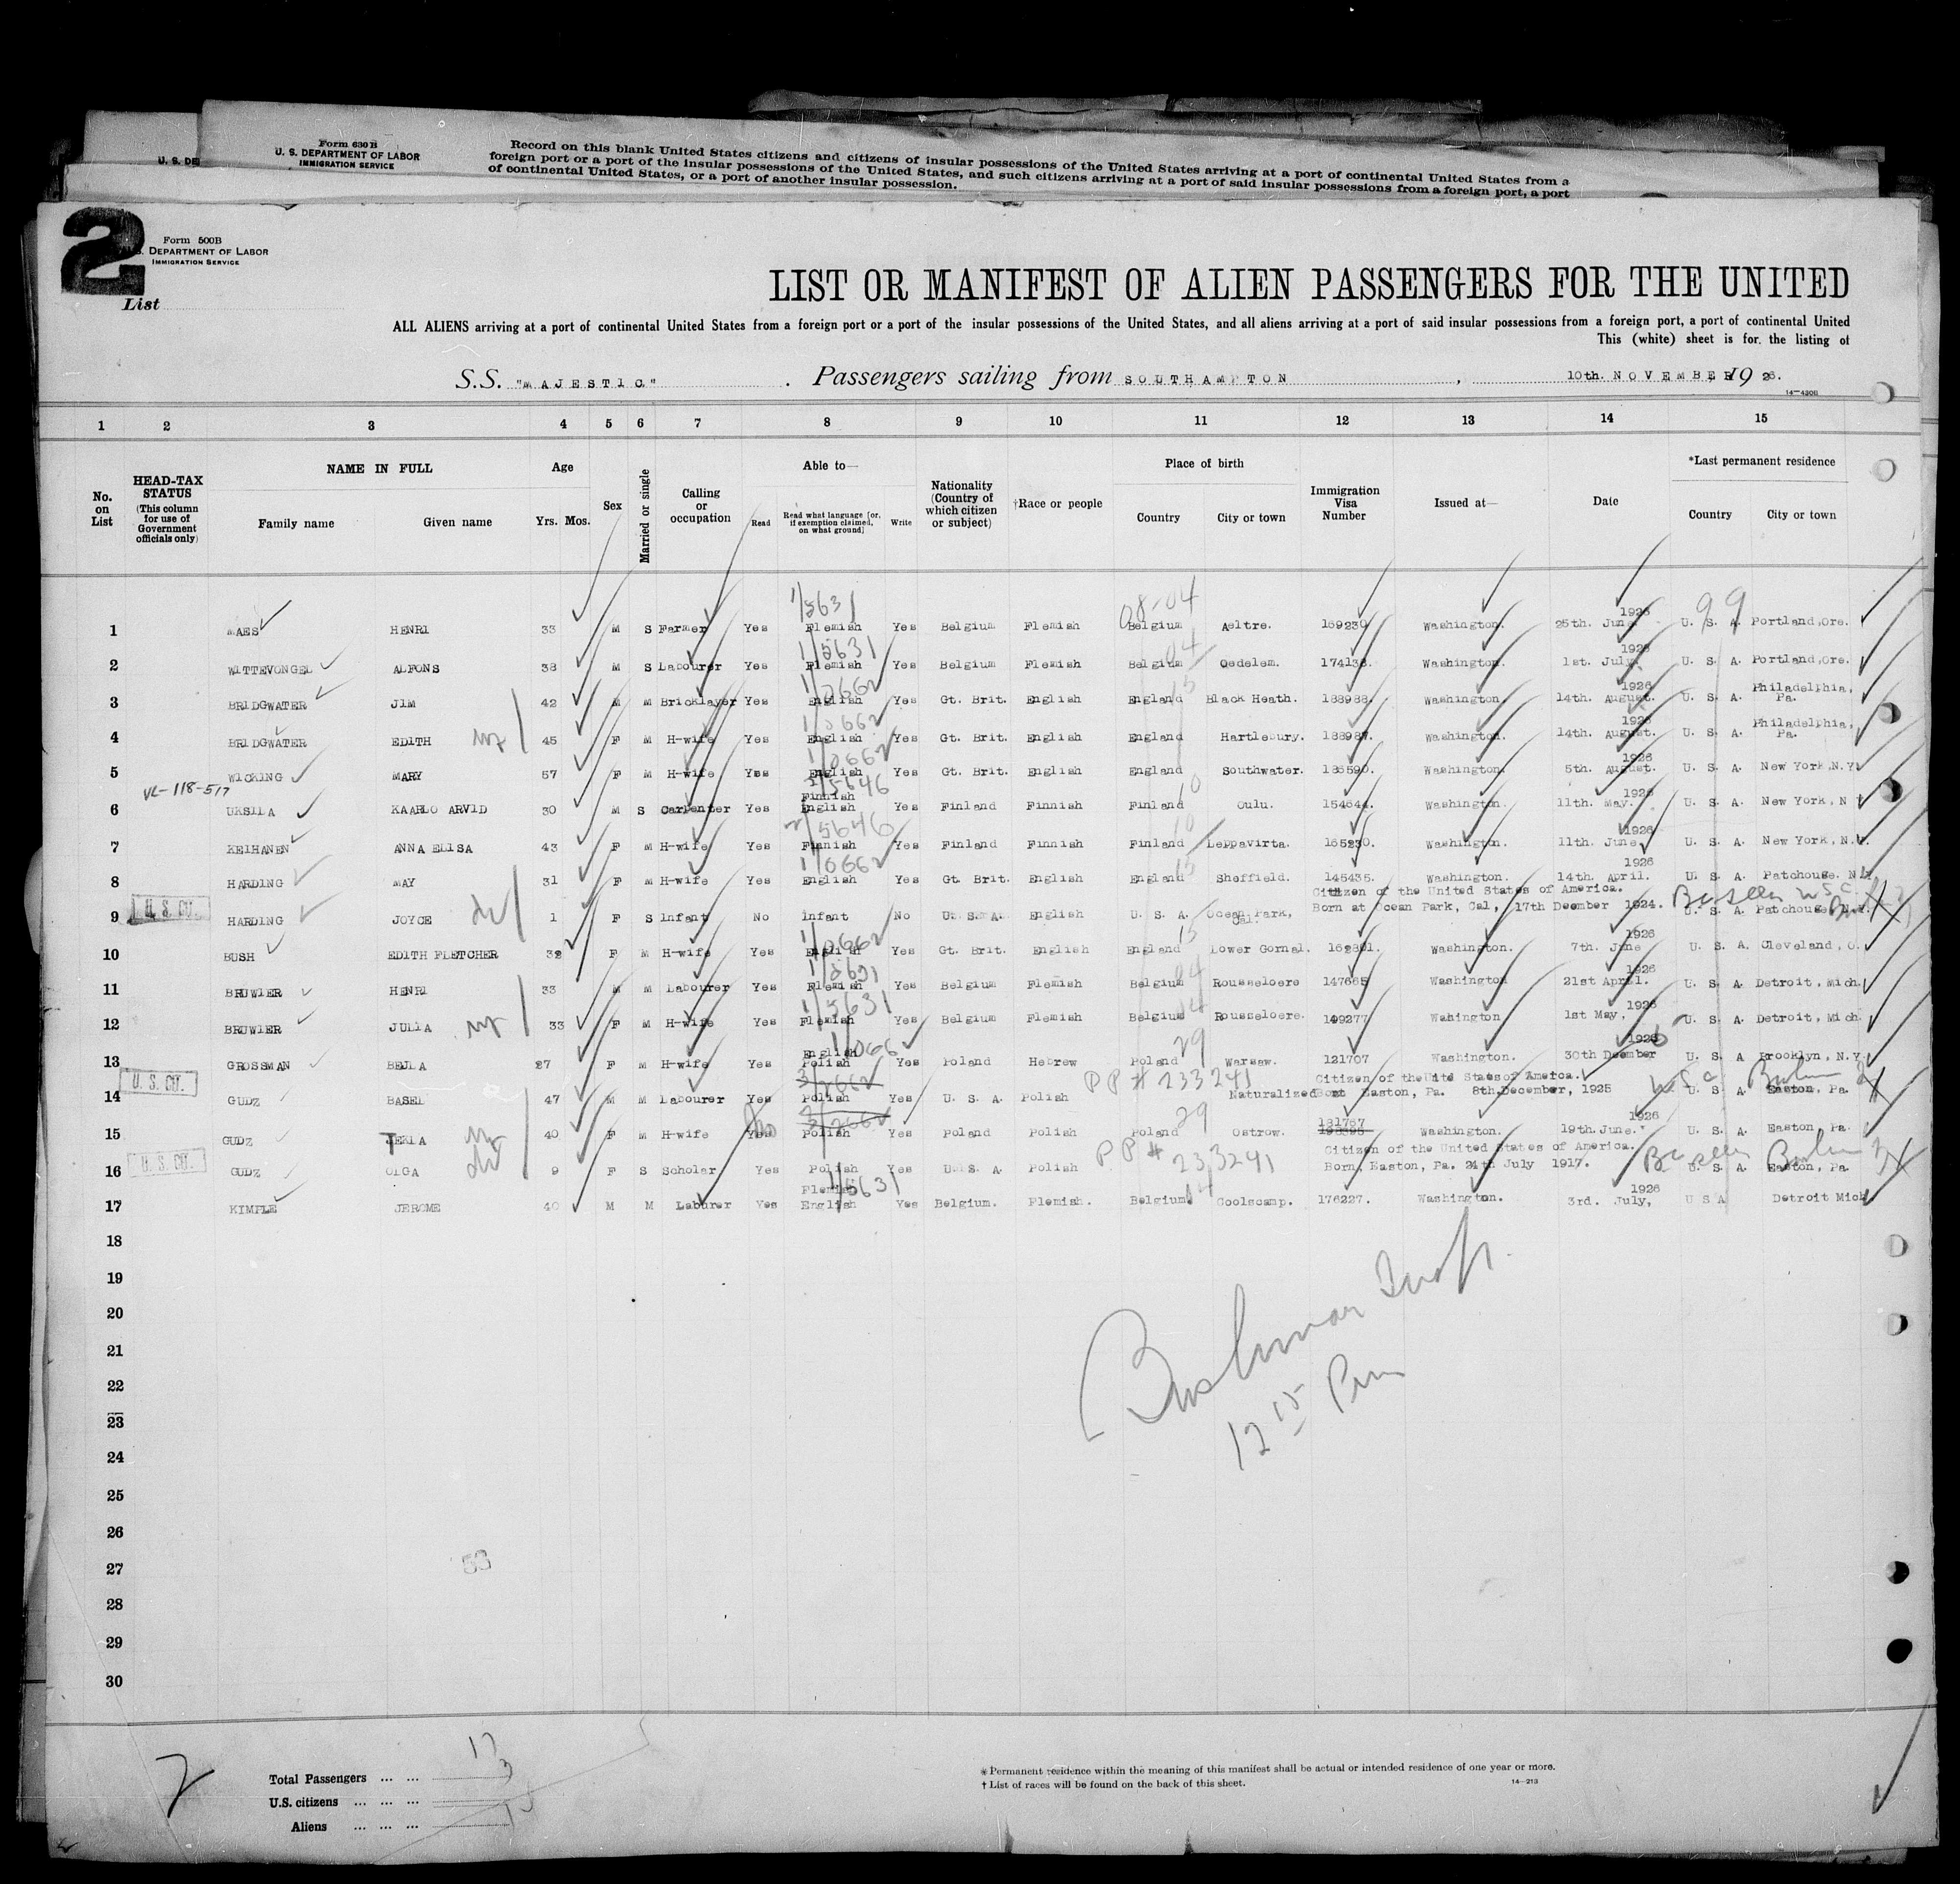 Form 630 B
U. S. DEPARTMENT OF LABOR
IMMIGRATION SERVICE
U. S. DE
Record on this blank United States citizens and citizens of insular possessions of the United States arriving at a port of continental United States from a
foreign port or a port of the insular possessions of the United States, and such citizens arriving at a port of said insular possessions from a foreign port, a port
of continental United States, or a port of another insular possession.
2
Form 500B
S. DEPARTMENT OF LABOR
IMMIGRATION SERVICE
List
LIST OR MANIFEST OF ALIEN PASSENGERS FOR THE UNITED
ALL ALIENS arriving at a port of continental United States from a foreign port or a port of the insular possessions of the United States, and all aliens arriving at a port of said insular possessions from a foreign port, a port of continental United
This (white) sheet is for the listing of
S.S. "MAJESTIC" . Passengers sailing from SOUTHAMPTON , 10th. NOVEMBER 19 26.
14—430B
1 2 3 4 5 6 7 8 9 10 11 12 13 14 15
No. on List
HEAD-TAX STATUS (This column for use of Government officials only)
NAME IN FULL
Family name Given name
Age
Yrs. Mos.
Sex
Married or single
Calling or occupation
Able to—
Read
Read what language [or, if exemption claimed, on what ground]
Write
Nationality (Country of which citizen or subject)
†Race or people
Place of birth
Country City or town
Immigration Visa Number
Issued at—
Date
*Last permanent residence
Country City or town
1/5631 08-04 1926 99
1 MAES HENRI 33 M S Farmer Yes Flemish Yes Belgium Flemish Belgium Aeltre. 169230 Washington. 25th. June U. S. A. Portland,Ore.
1/5631 04 1926
2 WITTEVONGEL ALFONS 38 M S Labourer Yes Flemish Yes Belgium Flemish Belgium Oedelem. 174136. Washington. 1st. July U. S. A. Portland,Ore.
1/0662 15 1926
3 BRIDGWATER JIM 42 M M Bricklayer Yes English Yes Gt. Brit. English England Black Heath. 188988. Washington. 14th. August. U. S. A. Philadelphia, Pa.
1/0662 1926
4 BRIDGWATER EDITH 45 F M H-wife Yes English Yes Gt. Brit. English England Hartlebury. 188987. Washington. 14th. August. U. S. A. Philadelphia, Pa.
1/0662 1926
5 WICKING MARY 57 F M H-wife Yes English Yes Gt. Brit. English England Southwater. 186590. Washington. 5th. August. U. S. A. New York,N.Y.
VL-118-517 5646 Finnish 10 1926
6 UKSILA KAARLO ARVID 30 M S Carpenter Yes English Yes Finland Finnish Finland Oulu. 154644. Washington. 11th. May. U. S. A. New York, N
2/5646 10 1926
7 KEIHANEN ANNA ELISA 43 F M H-wife Yes Finnish Yes Finland Finnish Finland Leppavirta. 165230. Washington. 11th. June U. S. A. New York, N.Y.
1/0662 15 1926
8 HARDING MAY 31 F M H-wife Yes English Yes Gt. Brit. English England Sheffield. 145435. Washington. 14th. April. U. S. A. Patchouge. N.Y.
U. S. CIT. Citizen of the United States of America.
9 HARDING JOYCE 1 F S Infant No Infant No U. S. A. English U. S. A. Ocean Park, Cal. Born at Ocean Park, Cal, 17th Deember 1924. U. S. A. Patchouge, N.Y.
1/0662 15 1926
10 BUSH EDITH FLETCHER 32 F M H-wife Yes English Yes Gt. Brit. English England Lower Gornal. 162801. Washington. 7th. June U. S. A. Cleveland, O.
1/5631 04 1926
11 BRUWIER HENRI 33 M M Labourer Yes Flemish Yes Belgium Flemish Belgium Rousseloere 147665 Washington 21st April. U. S. A. Detroit, Mich.
1/5631 04 1926
12 BRUWIER JULIA 33 F M H-wife Yes Flemish Yes Belgium Flemish Belgium Rousseloere. 149277 Wahington 1st May, U. S. A. Detroit, Mich
English 1/066 29 1926
13 GROSSMAN BEJLA 27 F M H-wife Yes Polish Yes Poland Hebrew Poland Warsaw. 121707 Washington. 30th Deember U. S. A Brooklyn, N.Y.
U. S. CIT. PP# 233241 Citizen of theUnite StatesofAmerica.
14 GUDZ BASEL 47 M M Labourer Yes Polish Yes U. S. A. Polish Naturalized Easton, Pa. 8th,December, 1925 U. S. A. Easton, Pa.
29 181787 1926
15 GUDZ TEKLA 40 F M H-wife No Polish Yes Poland Polish Poland Ostrow. Washington. 19th.June. U. S. A. Easton, Pa.
U. S. CIT. PP# 233241 Citizen of the United States of America.
16 GUDZ OLGA 9 F S Scholar Yes Polish Yes U. S. A. Polish Born, Easton, Pa. 24th July 1917. U. S. A. Easton, Pa.
Flemish 1/5631 04 1926
17 KIMPLE JEROME 40 M M Laburer Yes English Yes Belgium. Flemish. Belgium. Coolscamp. 176227. Washington. 3rd. July, U S A Detroit Mich.
18
19
20
21
22
23
24
25
26
27
28
29
30
12 15 Pm
Total Passengers ... ... 17
U.S. citizens ... ... ... 3
Aliens ... ... ...
2
* Permanent residence within the meaning of this manifest shall be actual or intended residence of one year or more.
† List of races will be found on the back of this sheet.
14—213